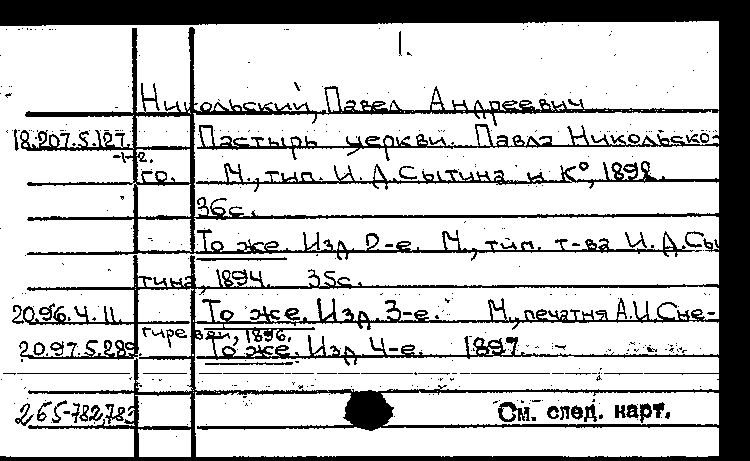 1.
Никольский, Павел Андреевич
18.207.5.127. Пастырь церкви. Павла Никольско-
-1-2.
го. М., тип. И. Д. Сытина и К°, 1892.
36с.
То же. Изд 2-е. М., тип. т-ва И. Д. Сы
тина, 1894. 35с.
20.96.4.11. То же. Изд. 3-е. М., печатня А.И. Сне-
гиревой, 1896.
20.97.5.289. То же. Изд. 4-е. 1897.
265-782,783 См. след. карт.